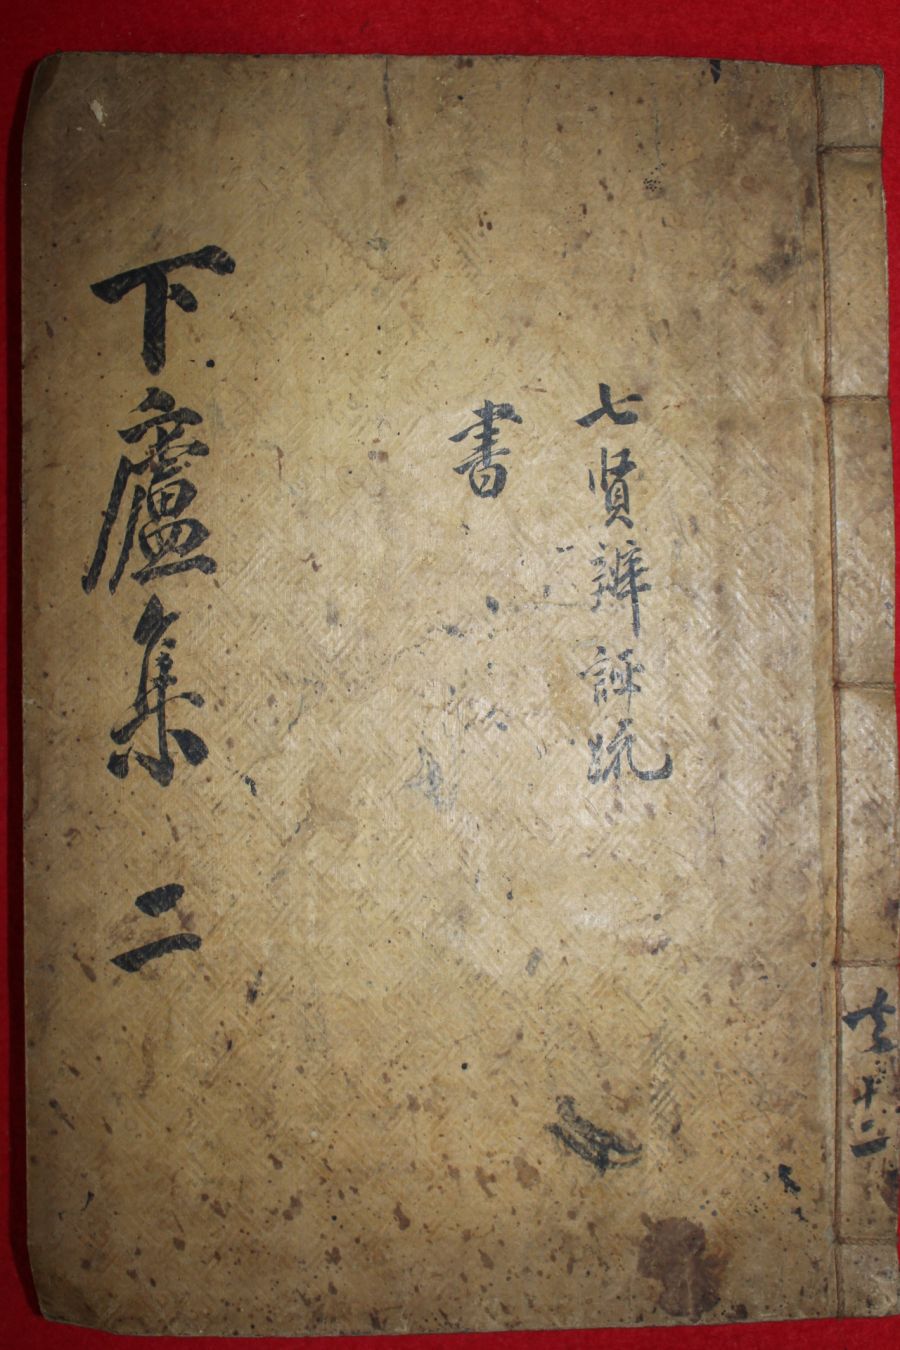 共十二
七賢辨誣疏
書
下廬集 二